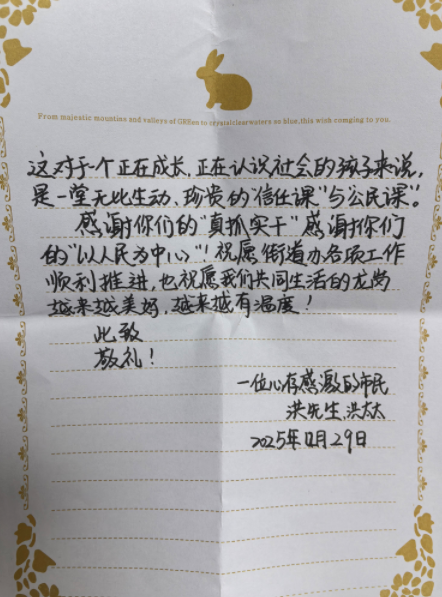 From majestic mountins and valleys of GREen to crystalclearwaters so blue,this wish comging to you.
这对于一个正在成长,正在认识社会的孩子来说,
是一堂无比生动、珍贵的"信任课"与公民课"。
感谢你们的"真抓实干"感谢你们
的"以人民为中心"!祝愿街道办各项工作
顺利推进,也祝愿我们共同生活的龙岗
越来越美好,越来越有温度!
此致
敬礼!
一位心存感激的市民
洪先生,洪太太
2025年12月29日